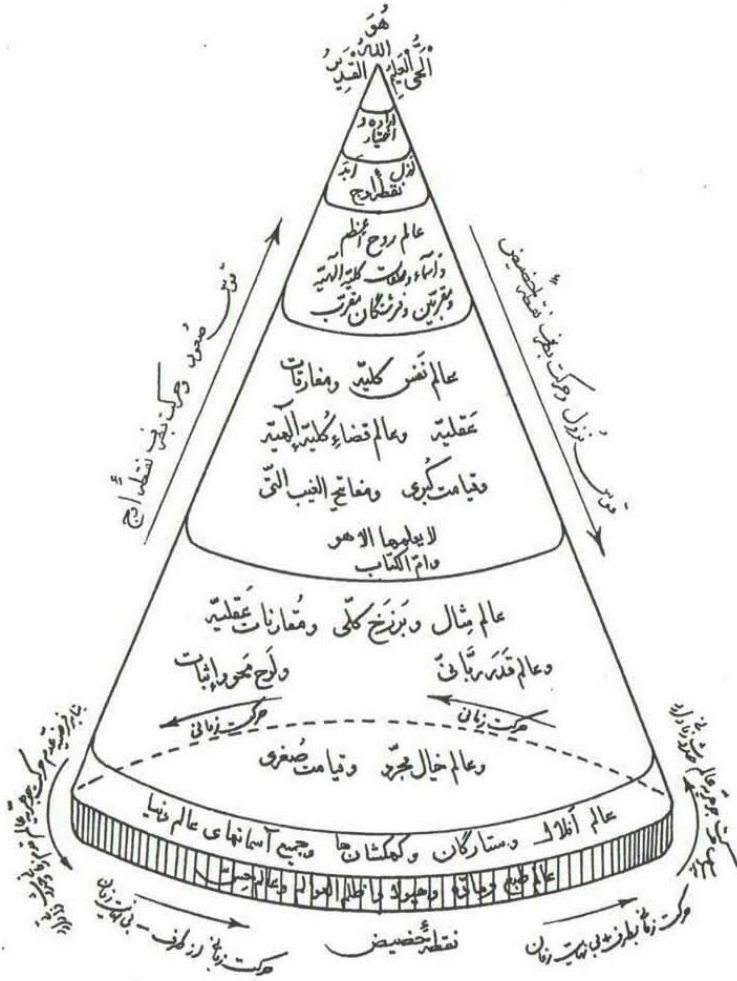 هُوَ
اللهُ
الْحَىُّ الْعَلِيمُ الْقَدِيرُ
اراده و
اختيار
ازل ابد
نقطهٔ اوج
عالم روح اعظم
و اسماء و صفات كليّه الهيّه
و مقربين و فرشتگان مقرب
عالم نفس كليّه ومفارقات
عَقليّه وعالم قضاءِ كُليّهِ الهيّه
وقيامت كُبرى ومفاتح الغيب الّتى
لا يعلمها الا هو
وامّ الكتاب
عالم مِثال وبَرزَخ كلّى ومُقارنات عَقليّه
وعالم قَدَر ربّانىّ ولَوح مَحو و إثبات
حركت زمانى حركت زمانى
وعالم خيال مجرّد وقيامت صُغرى
عالم أفلاك وستارگان وكهكشان‌ها وجميع آسمانهاى عالم دنيا
عالم طبع ومادّه وهيولا يا ظلم العوالم وعالم حِسّ
نقطهٔ حَضيض
قوس صُعود وحركت بطرف نقطهٔ أوج
قوس نُزول وحركت بطرف نقطهٔ حضيض
حركت زمانى از طرف - بى نهايت زمان
حركت زمانى بطرف + بى نهايت زمان